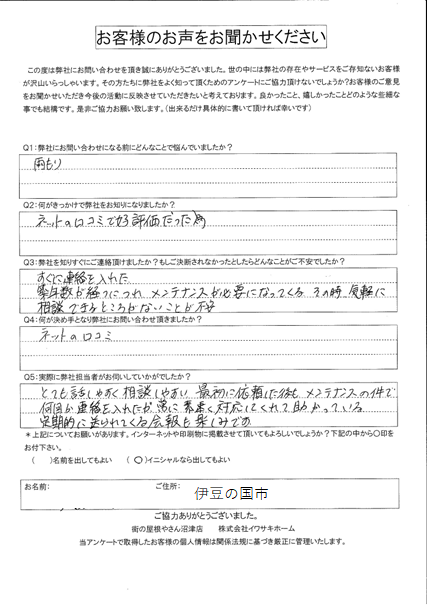 お客様のお声をお聞かせください
この度は弊社にお問い合わせを頂き誠にありがとうございました。世の中には弊社の存在やサービスをご存知ないお客様
が沢山いらっしゃいます。その方たちに弊社をよく知って頂くためのアンケートにご協力頂けないでしょうか?お客様のご意見
をお聞かせいただき今後の活動に反映させていただきたいと考えております。良かったこと、嬉しかったことどのような些細な
事でも結構です。是非ご協力お願い致します。(出来るだけ具体的に書いて頂ければ幸いです)
Q1:弊社にお問い合わせになる前にどんなことで悩んでいましたか?
雨もり
Q2:何がきっかけで弊社をお知りになりましたか?
ネットの口コミで好評価だった為
Q3:弊社を知りすぐにご連絡頂けましたか?もしご決断されなかったとしたらどんなことがご不安でしたか?
すぐに連絡を入れた
築年数が経つにつれ メンテナンスが必要になってくる その時 気軽に
相談できるところがないことが不安
Q4:何が決め手となり弊社にお問い合わせ頂きましたか?
ネットの口コミ
Q5:実際に弊社担当者がお伺いしていかがでしたか?
とても話しやすく相談しやすい 最初に依頼した後も メンテナンスの件で
何回か連絡を入れたが 常に 素早く対応してくれて助かっている
定期的に送られてくる会報も楽しみです
*上記についてお願いがあります。インターネットや印刷物に掲載させて頂いてもよろしいでしょうか?下記の中から〇印を
お付下さい。
( )名前を出してもよい (〇)イニシャルなら出してもよい
お名前: ご住所:
伊豆の国市
ご協力ありがとうございました。
街の屋根やさん沼津店 株式会社イワサキホーム
当アンケートで取得したお客様の個人情報は関係法規に基づき厳正に管理いたします。